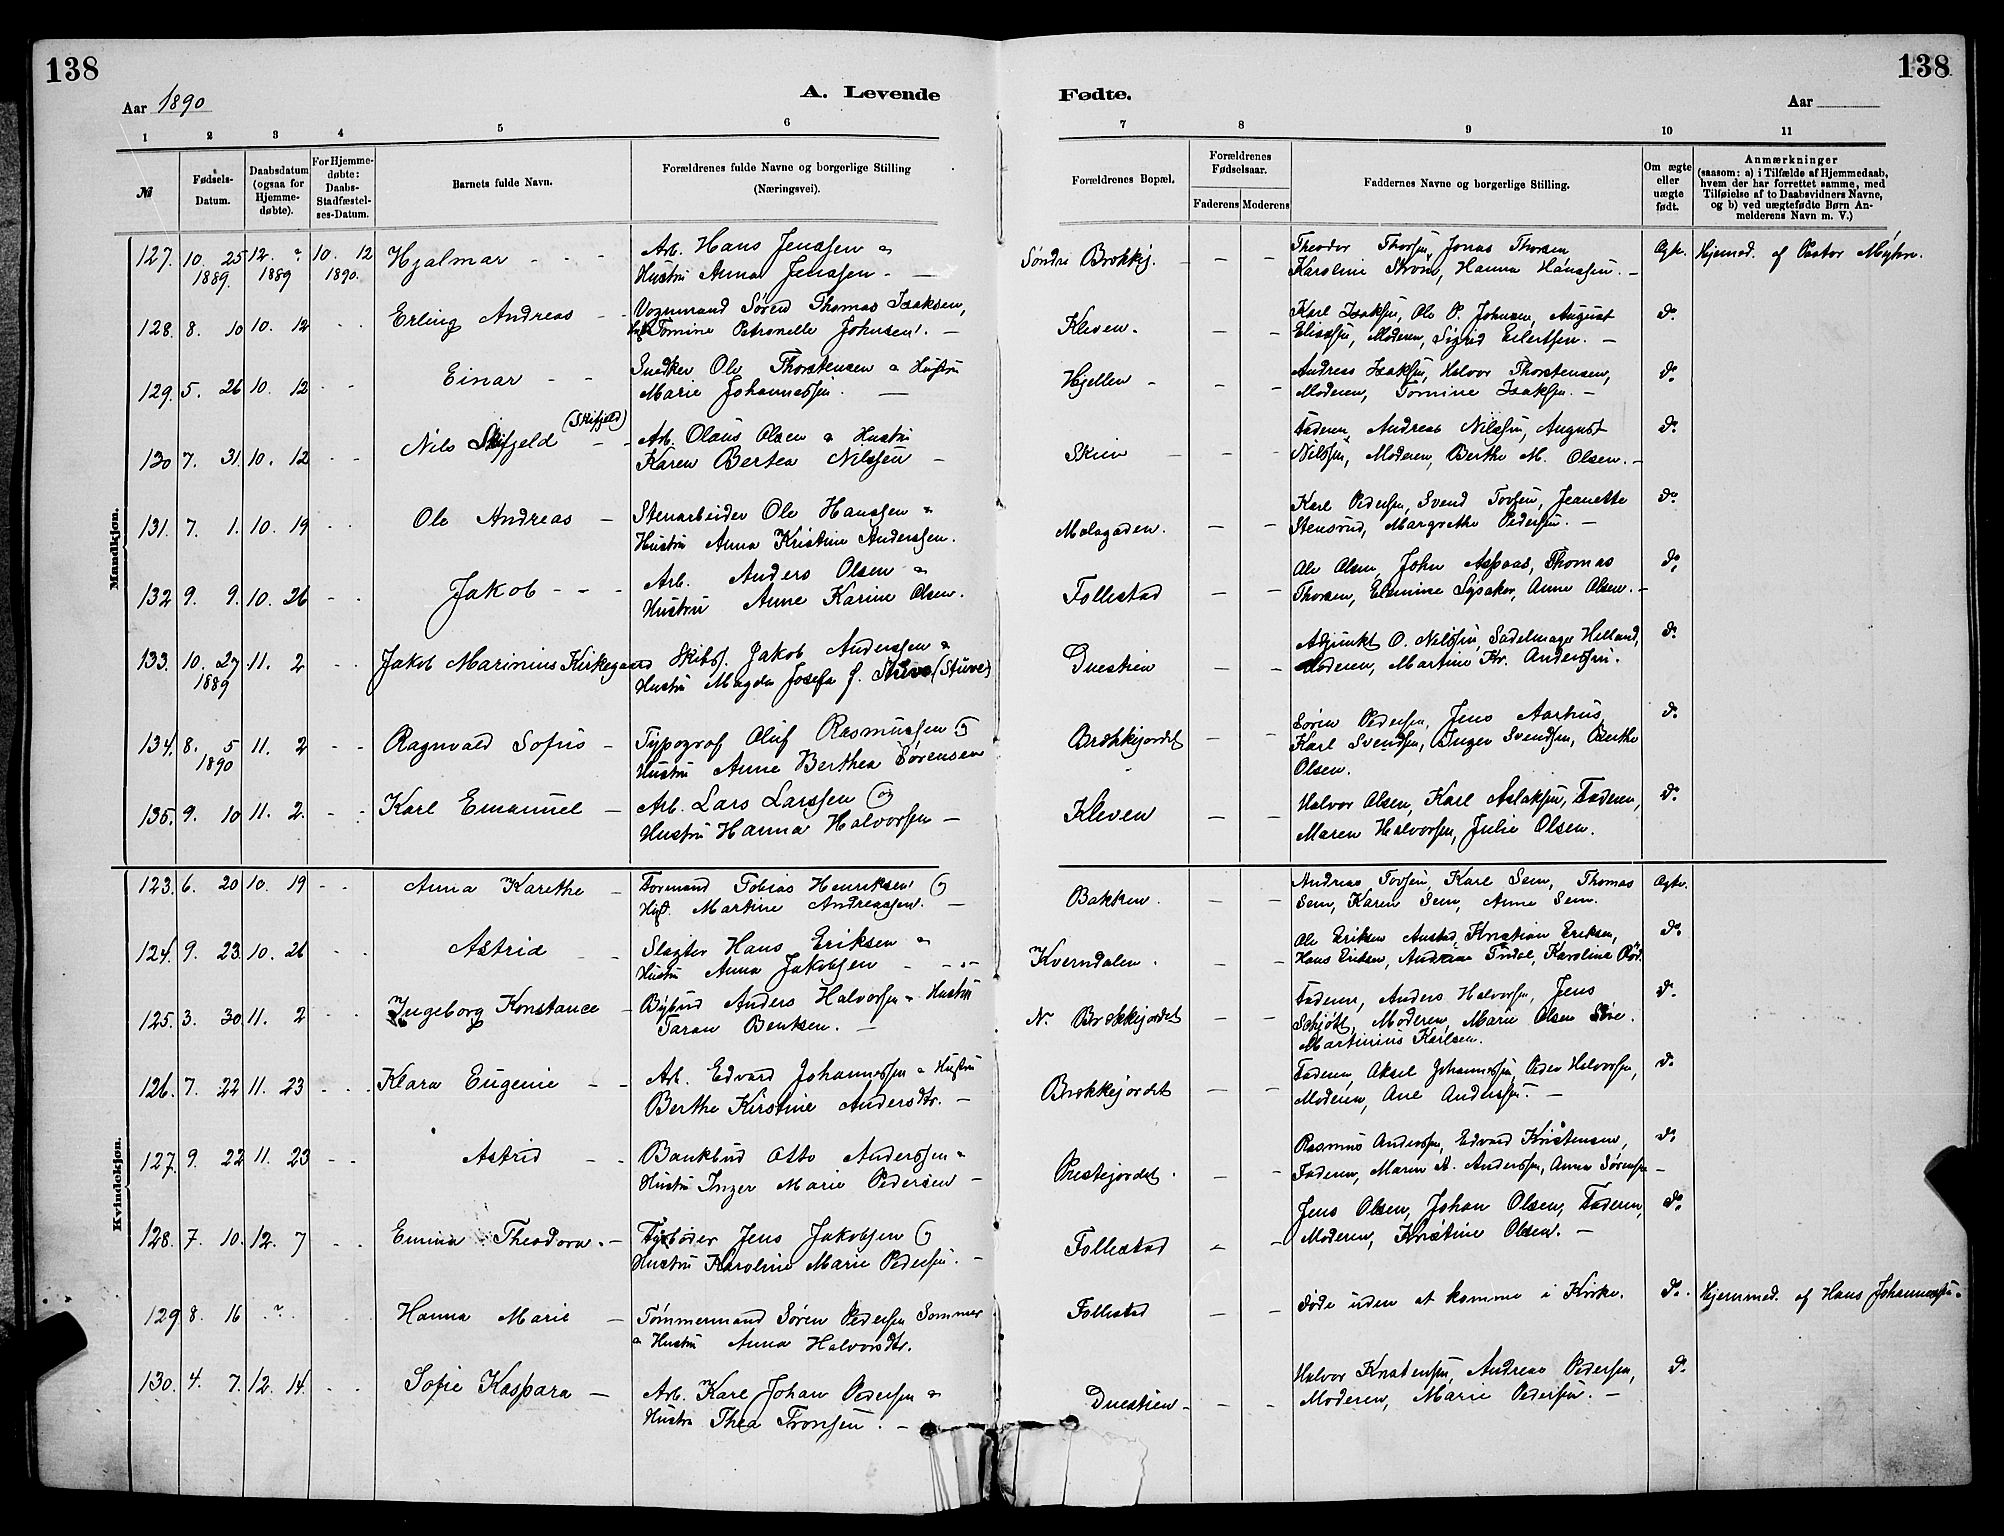 138
138
Aar 1890
A. Levende
Fødte.
Aar
1 2 3 4 5 6 7 8 9 10 11
№
Fødsels-Datum.
Daabsdatum (ogsaa for Hjemme-døbte).
For Hjemme-døbte: Daabs-Stadfæstelses-Datum.
Barnets fulde Navn.
Forældrenes fulde Navne og borgerlige Stilling (Næringsvei).
Forældrenes Bopæl.
Forældrenes Fødselsaar.
Faderens Moderens
Faddernes Navne og borgerlige Stilling.
Om ægte eller uægte født.
Anmærkninger
(saasom: a) i Tilfælde af Hjemmedaab, hvem der har forrettet samme, med Tilføielse af to Daabsvidners Navne, og b) ved uægtefødte Børn Anmelderens Navn m. V.)
Mandkjøn.
127. 10. 25 12. ? 10. 12 Hjalmar - - - Arb. Hans Jenssen o Søndre Brokkj. - - - Theodor Thorsen, Jonas Thorsen Ægte. Hjemmed. af Pastor Myhre.
1889. 1889 1890. Hustru Anna Jenssen. - Karoline Strøm, Hanna Hansen. -
128. 8. 10 10. 12 - - Erling Andreas - - Vognmand Søren Thomas Isaksen, Kleven. - - Karl Isaksen, Ole P. Johnsen, August do
Tomine Petronelle Johnsen. - Eliassen, Moderen, Sigrid Eilertsen. -
129. 5. 26 10. 12 - - Einar - - Snedker Ole Thorstensen o Hustru Hjellen - - - Andreas Isaksen, Halvor Thorstensen, do
Marie Johannessen. - Moderen, Tomine Isaksen. -
130 7. 31. 10. 12 - - Nils Skifjeld (Skifjeld) - - Arb. Olaus Olsen o Hustru Skien - - - Faderen, Andreas Nilssen, August do
Karen Bertea Nilssen - Nilssen, Moderen, Berthe M. Olsen. -
131. 7. 1. 10. 19 - - Ole Andreas - Stenarbeider Ole Hanssen o Melagaden. - - Karl Pedersen, Svend Tovsen, Jeanette do
Hustru Anna Kristine Anderssen. Stensrud, Margrethe Pedersen. -
132 9. 9. 10. 26 - - Jakob - - - Arb. Anders Olsen o Follestad - - Ole Olsen, John Aspaas, Thomas do
Hustru Anne Karine Olsen. Thorsen, Elenine Sysaker, Anne Olsen. -
133. 10. 27 11. 2 - - Jakob Marinius Kirkegaard Skibsf. Jakob Anderssen o Duestien - - Adjunkt O. Nilssen, Sadelmager Helland, do
1889 Hustru Magda Josefa f. Stuve (Stuve) Moderen, Martine Kr. Anderssen.
134. 8. 5 11. 2 - - Ragnvald Sofus - Typograf Oluf Rasmussen o Brokkejordet - - Søren Pedersen, Jens Aarhus, do
1890 Hustru Anne Berthea Sørensen Karl Svendsen, Inger Svendsen, Berthe
Olsen.
135. 9. 10 11. 2. - - Karl Emanuel - Arb. Lars Larssen og Kleven - - Halvor Olsen, Karl Aslaksen, Faderen, do
Hustru Hanna Halvorsen - Maren Halvorsen, Julie Olsen.
Kvindekjøn.
123. 6. 20 10. 19 - - Anna Karethe - Formand Tobias Henriksen o Bakken. - - Andreas Tovsen, Karl Sem, Thomas Ægte.
Hust. Martine Andreassen. - Sem, Karen Sem, Anne Sem.
124. 9. 23. 10. 26 - - Astrid - - Slagter Hans Eriksen o Kverndalen. - - Ole Eriksen Austad, Kristian Eriksen, do
Hustru Anna Jakobsen - - - Hans Eriksen, Andrine Findal, Karoline Rød.
125. 3. 30 11. 2 - - Ingeborg Konstance - Bybud Anders Halvorsen o Hustru N. Brokkejordet - - Faderen, Anders Halvorsen, Jens do
Taran Bentsen. - Schjøtt, Moderen, Marie Olsen
Martinius Karlsen.
126. 7. 22 11. 23 - - Klara Eugenie - - Arb. Edvard Johannessen o Hustru Brokkejordet - - Faderen, Aksel Johannessen, Peder Halvorsen, do
Berthe Kirstine Andersdtr. - Moderen, Ane Anderssen. -
127. 9. 22 11. 23 - - Astrid - - Bankbud Otto Anderssen o Prestejordet. - - Rasmus Anderssen, Edvard Kristensen, do
Hustru Inger Marie Pedersen - Faderen, Maren A. Anderssen, Anna Sørensen -
128. 7. 10. 12. 7 - - Emma Theodora. - Jens Jakobsen o Follestad - - Jens Olsen, Johan Olsen, Faderen, do
Hustru Karoline Marie Pedersen. - Moderen, Kristine Olsen. -
129 8. 16 - ? - - - Hanna Marie - Tømmermand Søren Pedersen Sommer Follestad - - Døde uden at komme i Kirke. do. Hjemmed. af Hans Johannessen.
o Hustru Anna Halvorsdtr.
130. 4. 7. 12. 14. - - Sofie Kaspara - Arb. Karl Johan Pedersen o Duestien - - - Halvor Kristensen, Andreas Pedersen, do
Hustru Thea Tronsen. - Moderen, Marie Pedersen. -